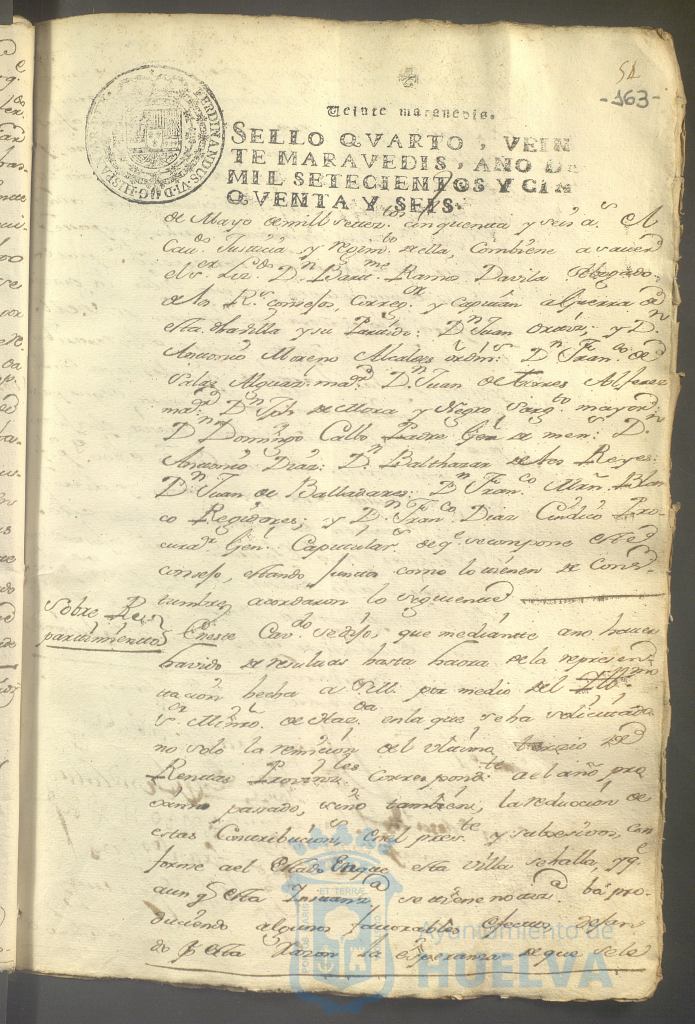 54
-163-
Veinte maravedis.
SELLO QVARTO, VEIN
TE MARAVEDIS, AÑO DE
MIL SETECIENTOS Y CIN
QVENTA Y SEIS.
FERDINANDUS·VI·D·G·HISPA
de Mayo de mill setez.tos cinquenta y seis a.s el
Cav.do Justicia y regim.to de ella, combiene a saver
el s.or Liz.do D.n Bart.me Ramos Davila Abogado
de los R.s consejos, Correg.or y Capitan a Guerra de
esta villa y su Partido: D.n Juan y D.n
Antonio Moreno Alcaldes ordin.s D.n Fran.co de
Salas Alguazil ma.or D.n Juan de Torres Alferez
ma.or D.n Jph de Mora y Negro Sarg.to mayor
D.n Domingo Calbo Padre Gen.l de men.s D.n
Antonio Diaz: D.n Balthazar de los Reyes:
D.n Juan de Balladares: D.n Fran.co Mrñ. Blan
co Regidores; y D.n Fran.co Diaz Cindico Pro-
cura.or Gen.l Capitular.s de q.e se compone este
consejo, estando juntos como lo tienen de cons-
tumbre acordaron lo siguiente
Sobre Re-
partimientos
En este Cav.do se dijo, que mediante a no haver
havido de resultas hasta haora de la represen-
tacion hecha a S.M. por medio del Ill.mo
s.or Minro. de Haz.da en la que se ha solicitado
no solo la remicion del ultimo tercio de
Rentas Provinz.les correspond.te a el año pro
ximo pasado, sino tambien, la reduccion de
estas Contribucion.s en el pres.te y subsesivos, con
forme a el estado en que esta villa se halla, y q.e
aun q.e esta Instanz.a se tiene notiz.a ba pro-
duciendo algunos favorables efectos defan
do p.r esta razon la esperanza de que se le
Ayuntamiento de
HUELVA